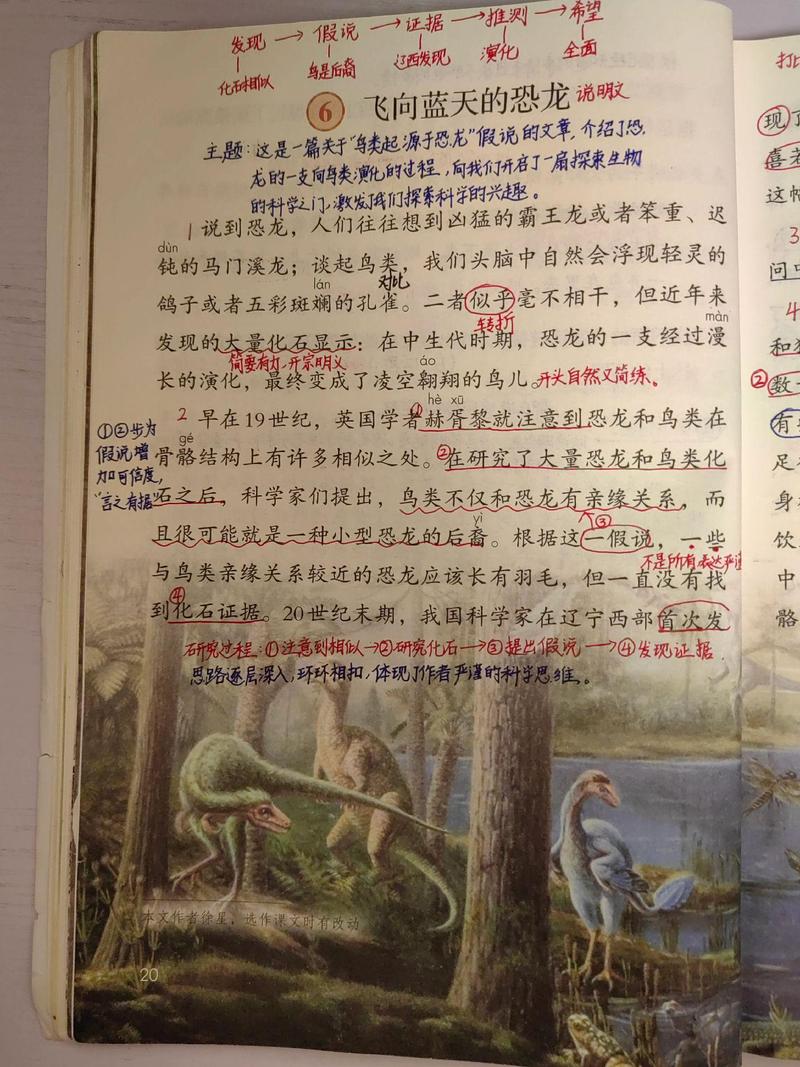 发现→假说→证据→推测→希望
化石相似 鸟是后裔 辽西发现 演化 全面
6 飞向蓝天的恐龙 说明文
主题:这是一篇关于“鸟类起源于恐龙”假说的文章,介绍了恐
龙的一支向鸟类演化的过程,向我们开启了一扇探索生物
的科学之门,激发我们探索科学的兴趣。
1 说到恐龙,人们往往想到凶猛的霸王龙或者笨重、迟
dùn
钝的马门溪龙;谈起鸟类,我们头脑中自然会浮现轻灵的
lán 对比
鸽子或者五彩斑斓的孔雀。二者似乎毫不相干,但近年来
转折 màn
发现的大量化石显示:在中生代时期,恐龙的一支经过漫
简要有力,开宗明义 áo
长的演化,最终变成了凌空翱翔的鸟儿。开头自然又简练。
hè xū
2 早在19世纪,英国学者①赫胥黎就注意到恐龙和鸟类在
gé
骨骼结构上有许多相似之处。②在研究了大量恐龙和鸟类化
石之后,科学家们提出,鸟类不仅和恐龙有亲缘关系,而
yì
且很可能就是一种小型恐龙的后裔。根据这一假说,一些
③
不是所有,表达严谨
与鸟类亲缘关系较近的恐龙应该长有羽毛,但一直没有找
④
到化石证据。20世纪末期,我国科学家在辽宁西部首次发
①②步为
假说增
加可信度,
“言之有据”
研究过程:①注意到相似→②研究化石→③提出假说→④发现证据
思路逐层深入,环环相扣,体现了作者严谨的科学思维。
本文作者徐星,选作课文时有改动
20
打比
现了
喜若
这
3
问中
4
和
②数一
有
足
身
饮
中
骼